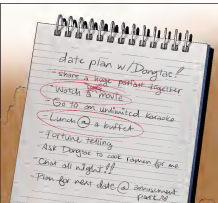 date plan w/Dongtae!
- Share a huge parfait together
- Watch a movie
- Go to an unlimited karaoke
- Lunch @ a buffet
- Fortune telling
- Ask Dongtae to cook ramen for me
- Chat all night!!
- Plan for next date @ amusement
park!!